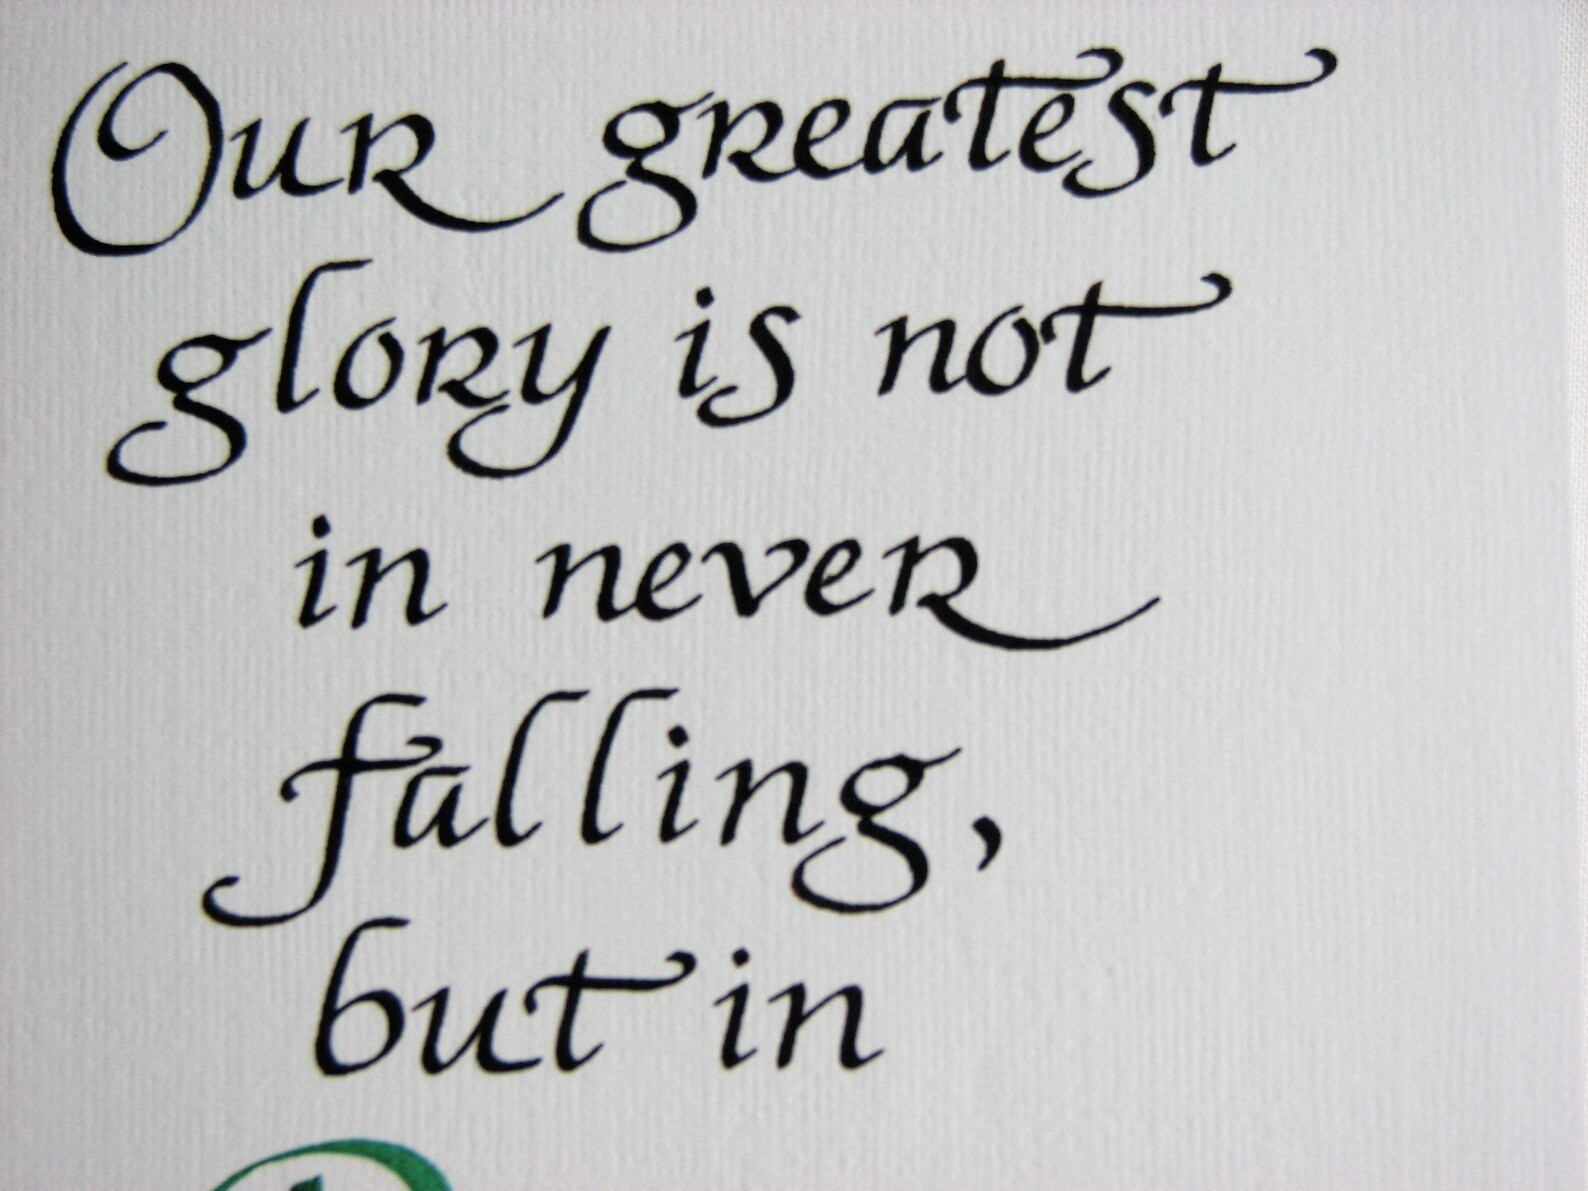 Our greatest
glory is not
in never
falling,
but in